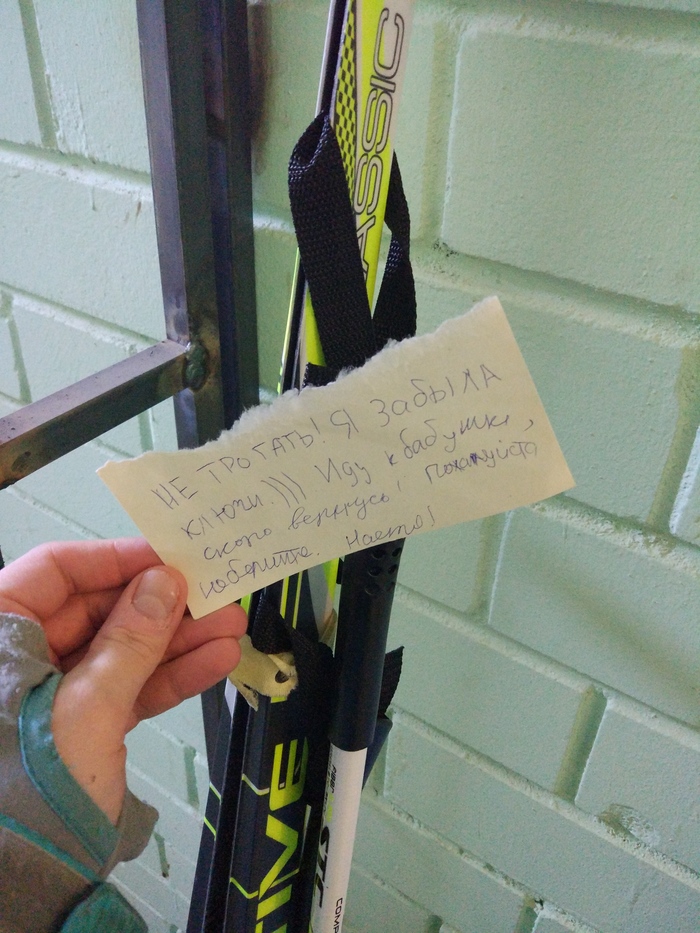 ASSIC
НЕ ТРОГАТЬ! Я ЗАБЫЛА
ключи.))) Иду к бабушке,
скоро вернусь, пожалуйста
неберите. Настя!
TIVE
STC
COMP